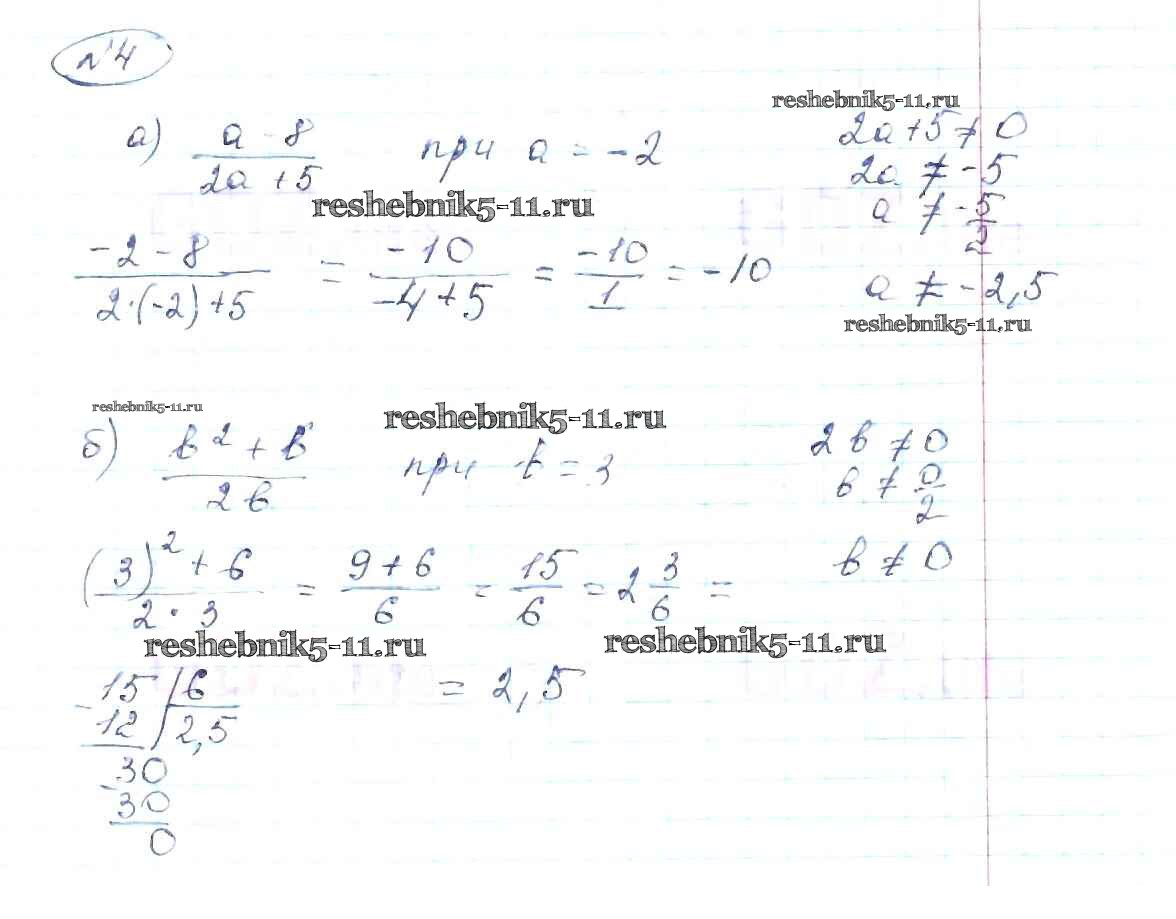 №4
reshebnik5-11.ru
а) a - 8 / 2a + 5 при a = -2
2a + 5 ≠ 0
2a ≠ -5
a ≠ -5/2
a ≠ -2,5
reshebnik5-11.ru
reshebnik5-11.ru
-2 - 8 / 2·(-2) + 5 = -10 / -4 + 5 = -10 / 1 = -10
reshebnik5-11.ru
reshebnik5-11.ru
б) b² + b / 2b при b = 3
2b ≠ 0
b ≠ 0/2
b ≠ 0
(3)² + 6 / 2 · 3 = 9 + 6 / 6 = 15 / 6 = 2 3/6 =
reshebnik5-11.ru
reshebnik5-11.ru
= 2,5
15 | 6
- 12 | 2,5
- 30
30
0